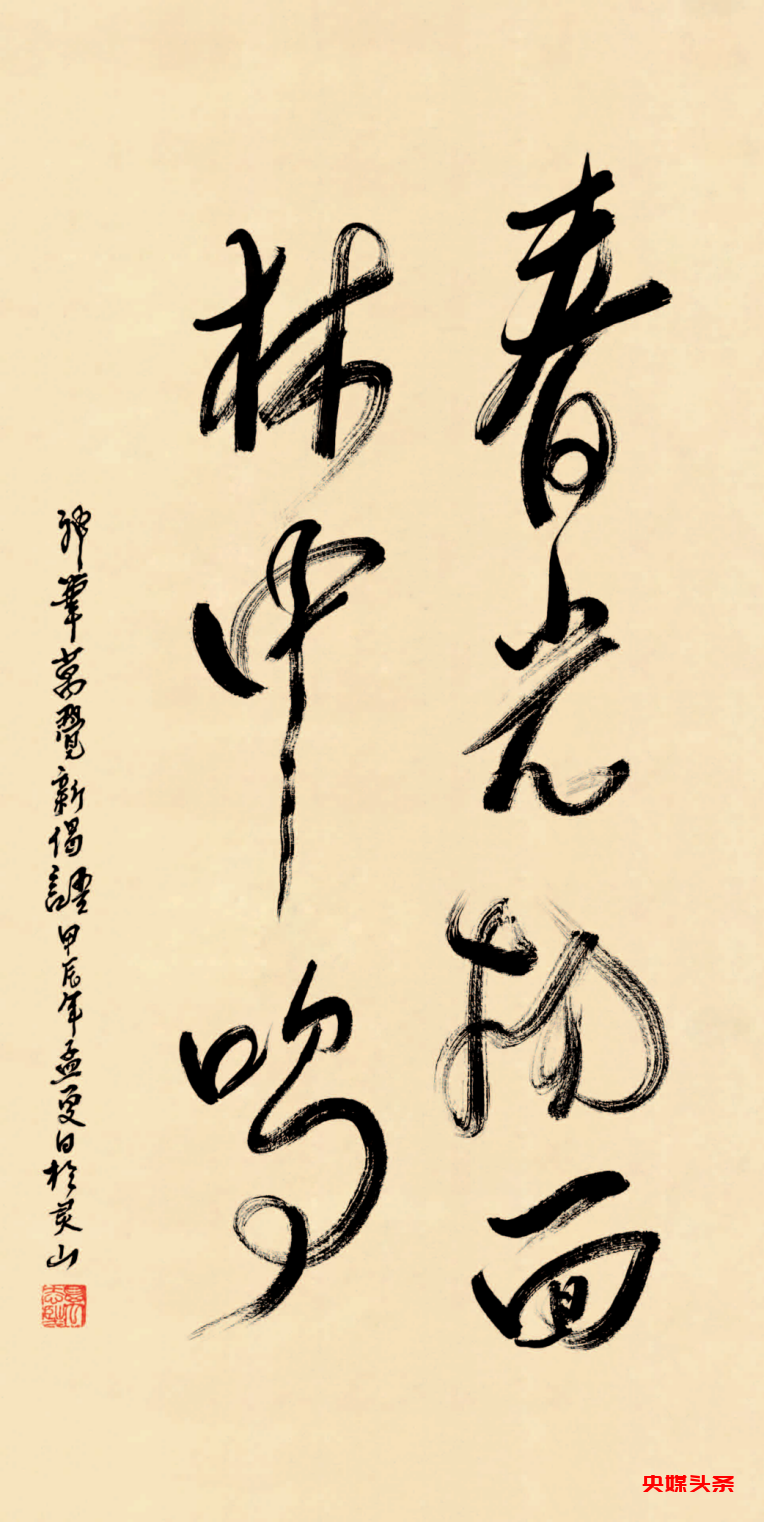 春光拂面
林中鸣
神筆萬覺新偈證甲辰年孟夏日於灵山
央媒头条